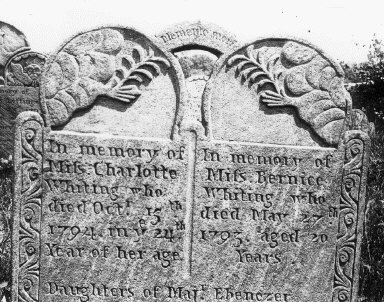 Memento mori
In memory of
Miſs Charlotte
Whiting who
died Octʳ. 15ᵗʰ
1794. in yᵉ 24ᵗʰ
Year of her age
In memory of
Miſs Bernice
Whiting who
died May 27ᵗʰ
1795. aged 20
Years
Daughters of Majʳ. Ebenezer